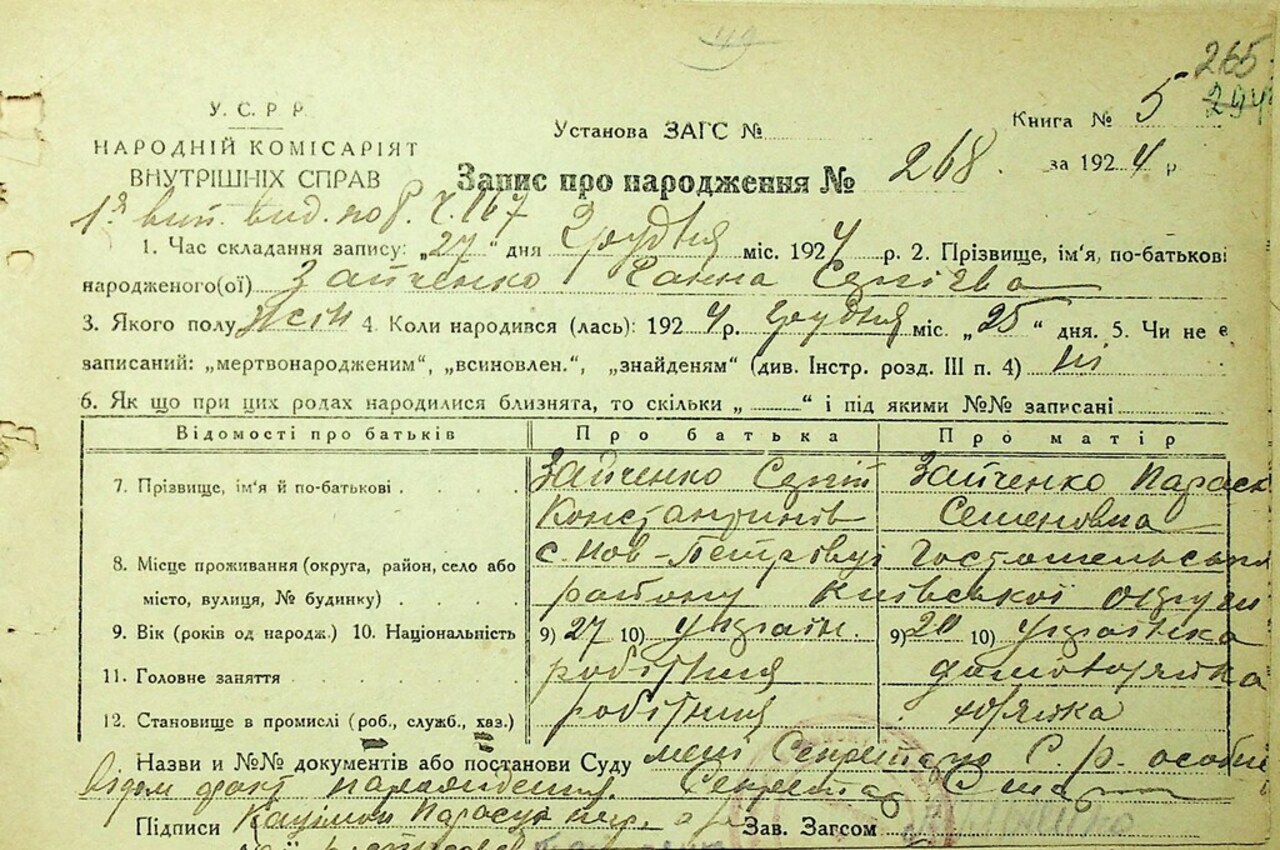 265
294
У. С. Р Р.
НАРОДНІЙ КОМІСАРІЯТ
ВНУТРІШНІХ СПРАВ
Установа ЗАГС №
Книга № 5
за 1924 р
Запис про народження № 268.
1. Час складання запису: „27“ дня Грудня міс. 1924 р. 2. Прізвище, ім'я, по-батькові
народженого(ої) Зайченко Ганна Сергієва
3. Якого полу жін 4. Коли народився (лась): 1924 р. грудня міс. „25“ дня. 5. Чи не є
записаний: „мертвонародженим“, „всиновлен.“, „знайденям“ (див. Інстр. розд. III п. 4) ні
6. Як що при цих родах народилися близнята, то скільки „ “ і під якими №№ записані
Відомості про батьків Про батька Про матір
7. Прізвище, ім'я й по-батькові Зайченко Сергій Зайченко Параск
Константинов Семеновна
8. Місце проживання (округа, район, село або с. Нов-Петрівці Гостомельськ
місто, вулиця, № будинку) району Київської округи
9. Вік (років од народж.) 10. Національність 9) 27 10) Україн. 9) 20 10) Українка
11. Головне заняття робітник домохазяйка
12. Становище в промислі (роб., служб., хаз.) робітник
Назви и №№ документів або постанови Суду мені Секретарю С. р. особи
відом факт народження. Секретар
Підписи
Зав. Загсом